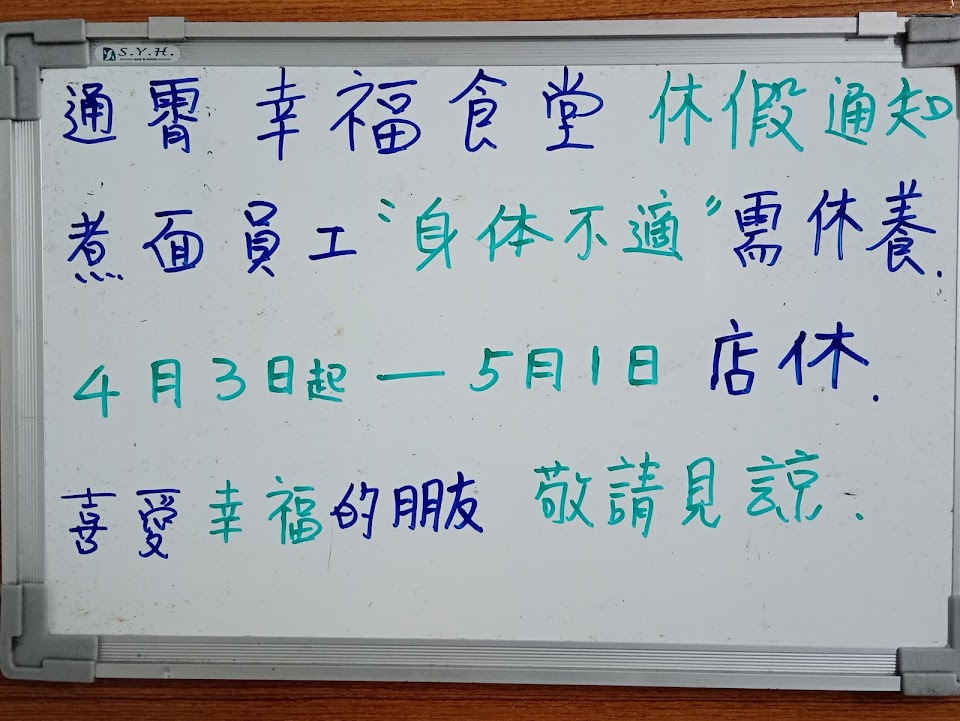 S.Y.H.
通霄 幸福食堂 休假通知
煮面員工"身体不適"需休養.
4月3日起 — 5月1日 店休.
喜愛幸福的朋友 敬請見諒.